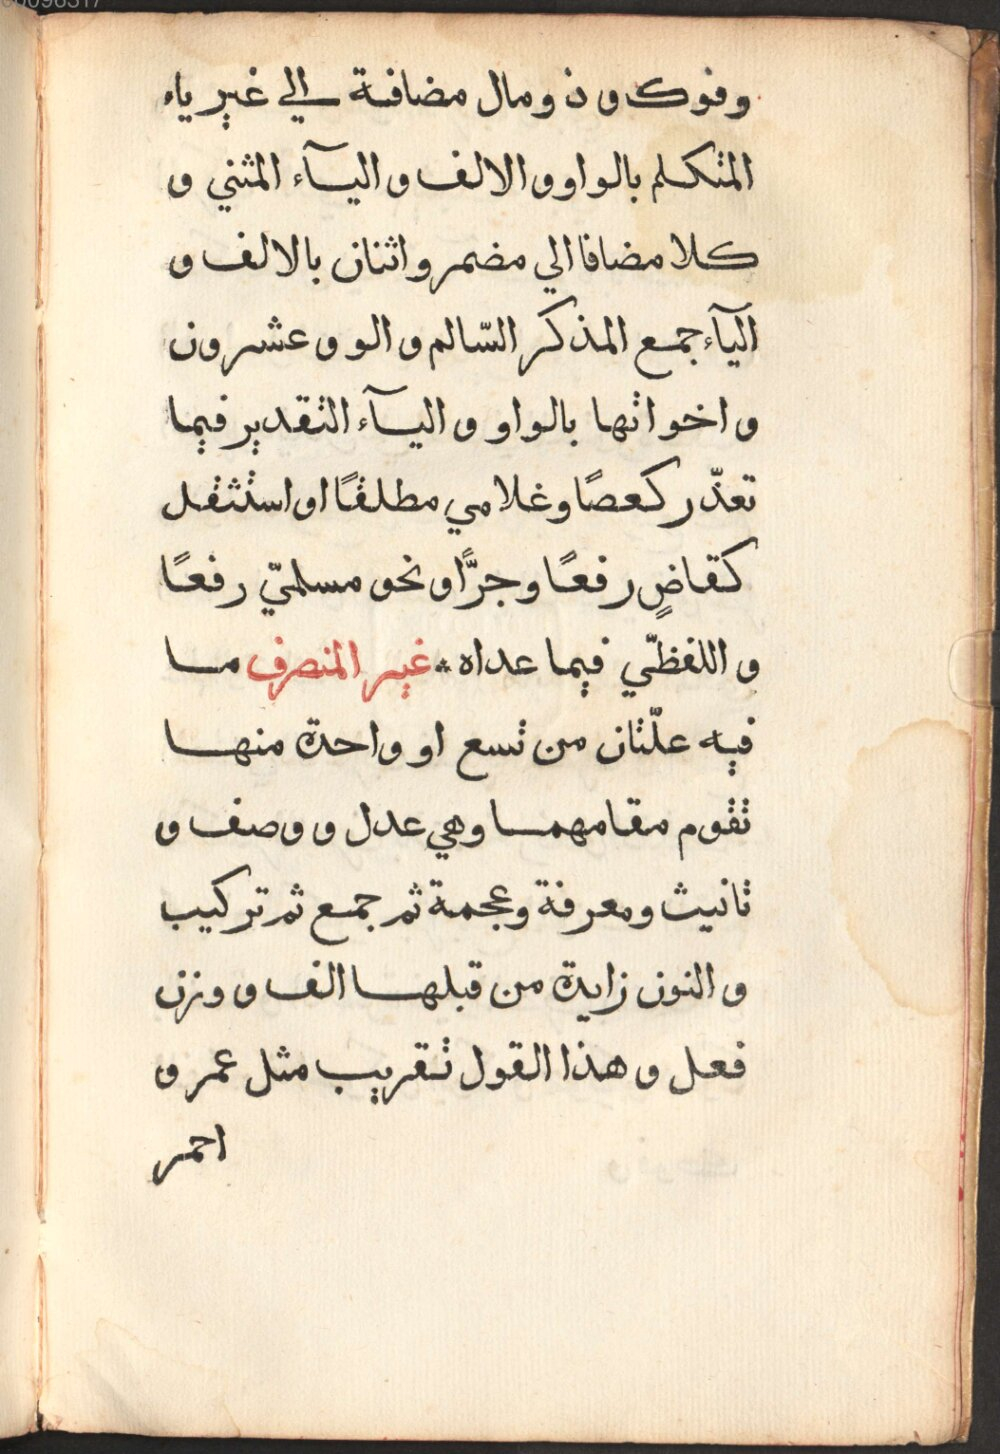 وفوك و ذ و مال مضافة الي غير ياء
المتكلم بالواو و الالف و اليآء المثني و
كلا مضافا الي مضمر و اثنان بالالف و
اليآء جمع المذكر السّالم و الو و عشرون
و اخواتها بالواو و اليآء التقدير فيما
تعذّر كعصًا وغلامي مطلقًا او استثقل
كقاضٍ رفعًا وجرًّا و نحو مسلميّ رفعًا
و اللفظّي فيما عداه ؞ غير المنصرف ما
فيه علّتان من تسع او واحدة منها
تقوم مقامهما وهي عدل و وصف و
تانيث ومعرفة وعجمة ثم جمع ثم تركيب
و النون زايدة من قبلها الف و وزن
فعل و هذا القول تقريب مثل عمر و
احمر